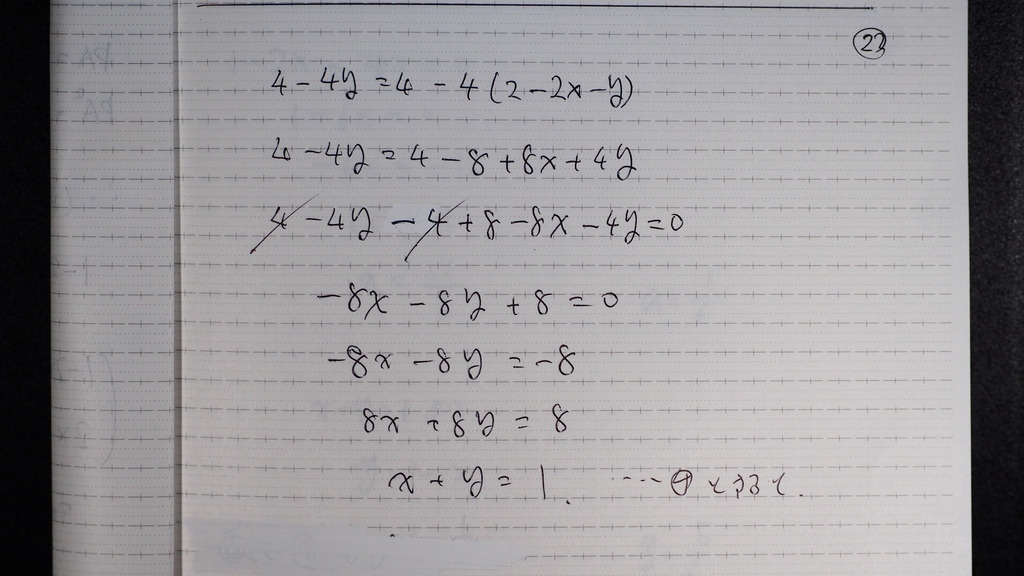 23
4 - 4y = 4 - 4(2 - 2x - y)
4 - 4y = 4 - 8 + 8x + 4y
4 - 4y - 4 + 8 - 8x - 4y = 0
-8x - 8y + 8 = 0
-8x - 8y = -8
8x + 8y = 8
x + y = 1.